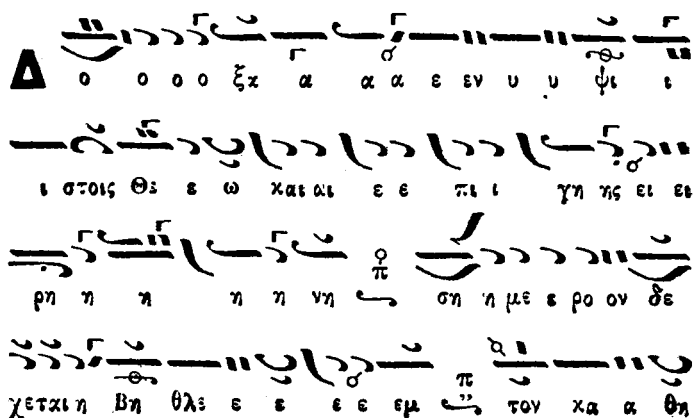 Δ ο ο ο ο ξα α α α ε εν υ υ ψι ι
ι στοις Θε ε ω και αι ε ε πι ι γη ης ει ει
ρη η η η η νη π ση η με ε ρο ον δε
χεται η Βη θλε ε ε ε ε εμ π τον κα α θη